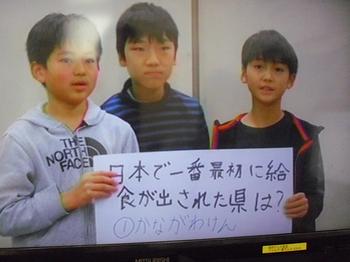 THE
NORTH
FACE
日本で一番最初に給
食が出された県は?
①かながわけん
MITSUBISHI